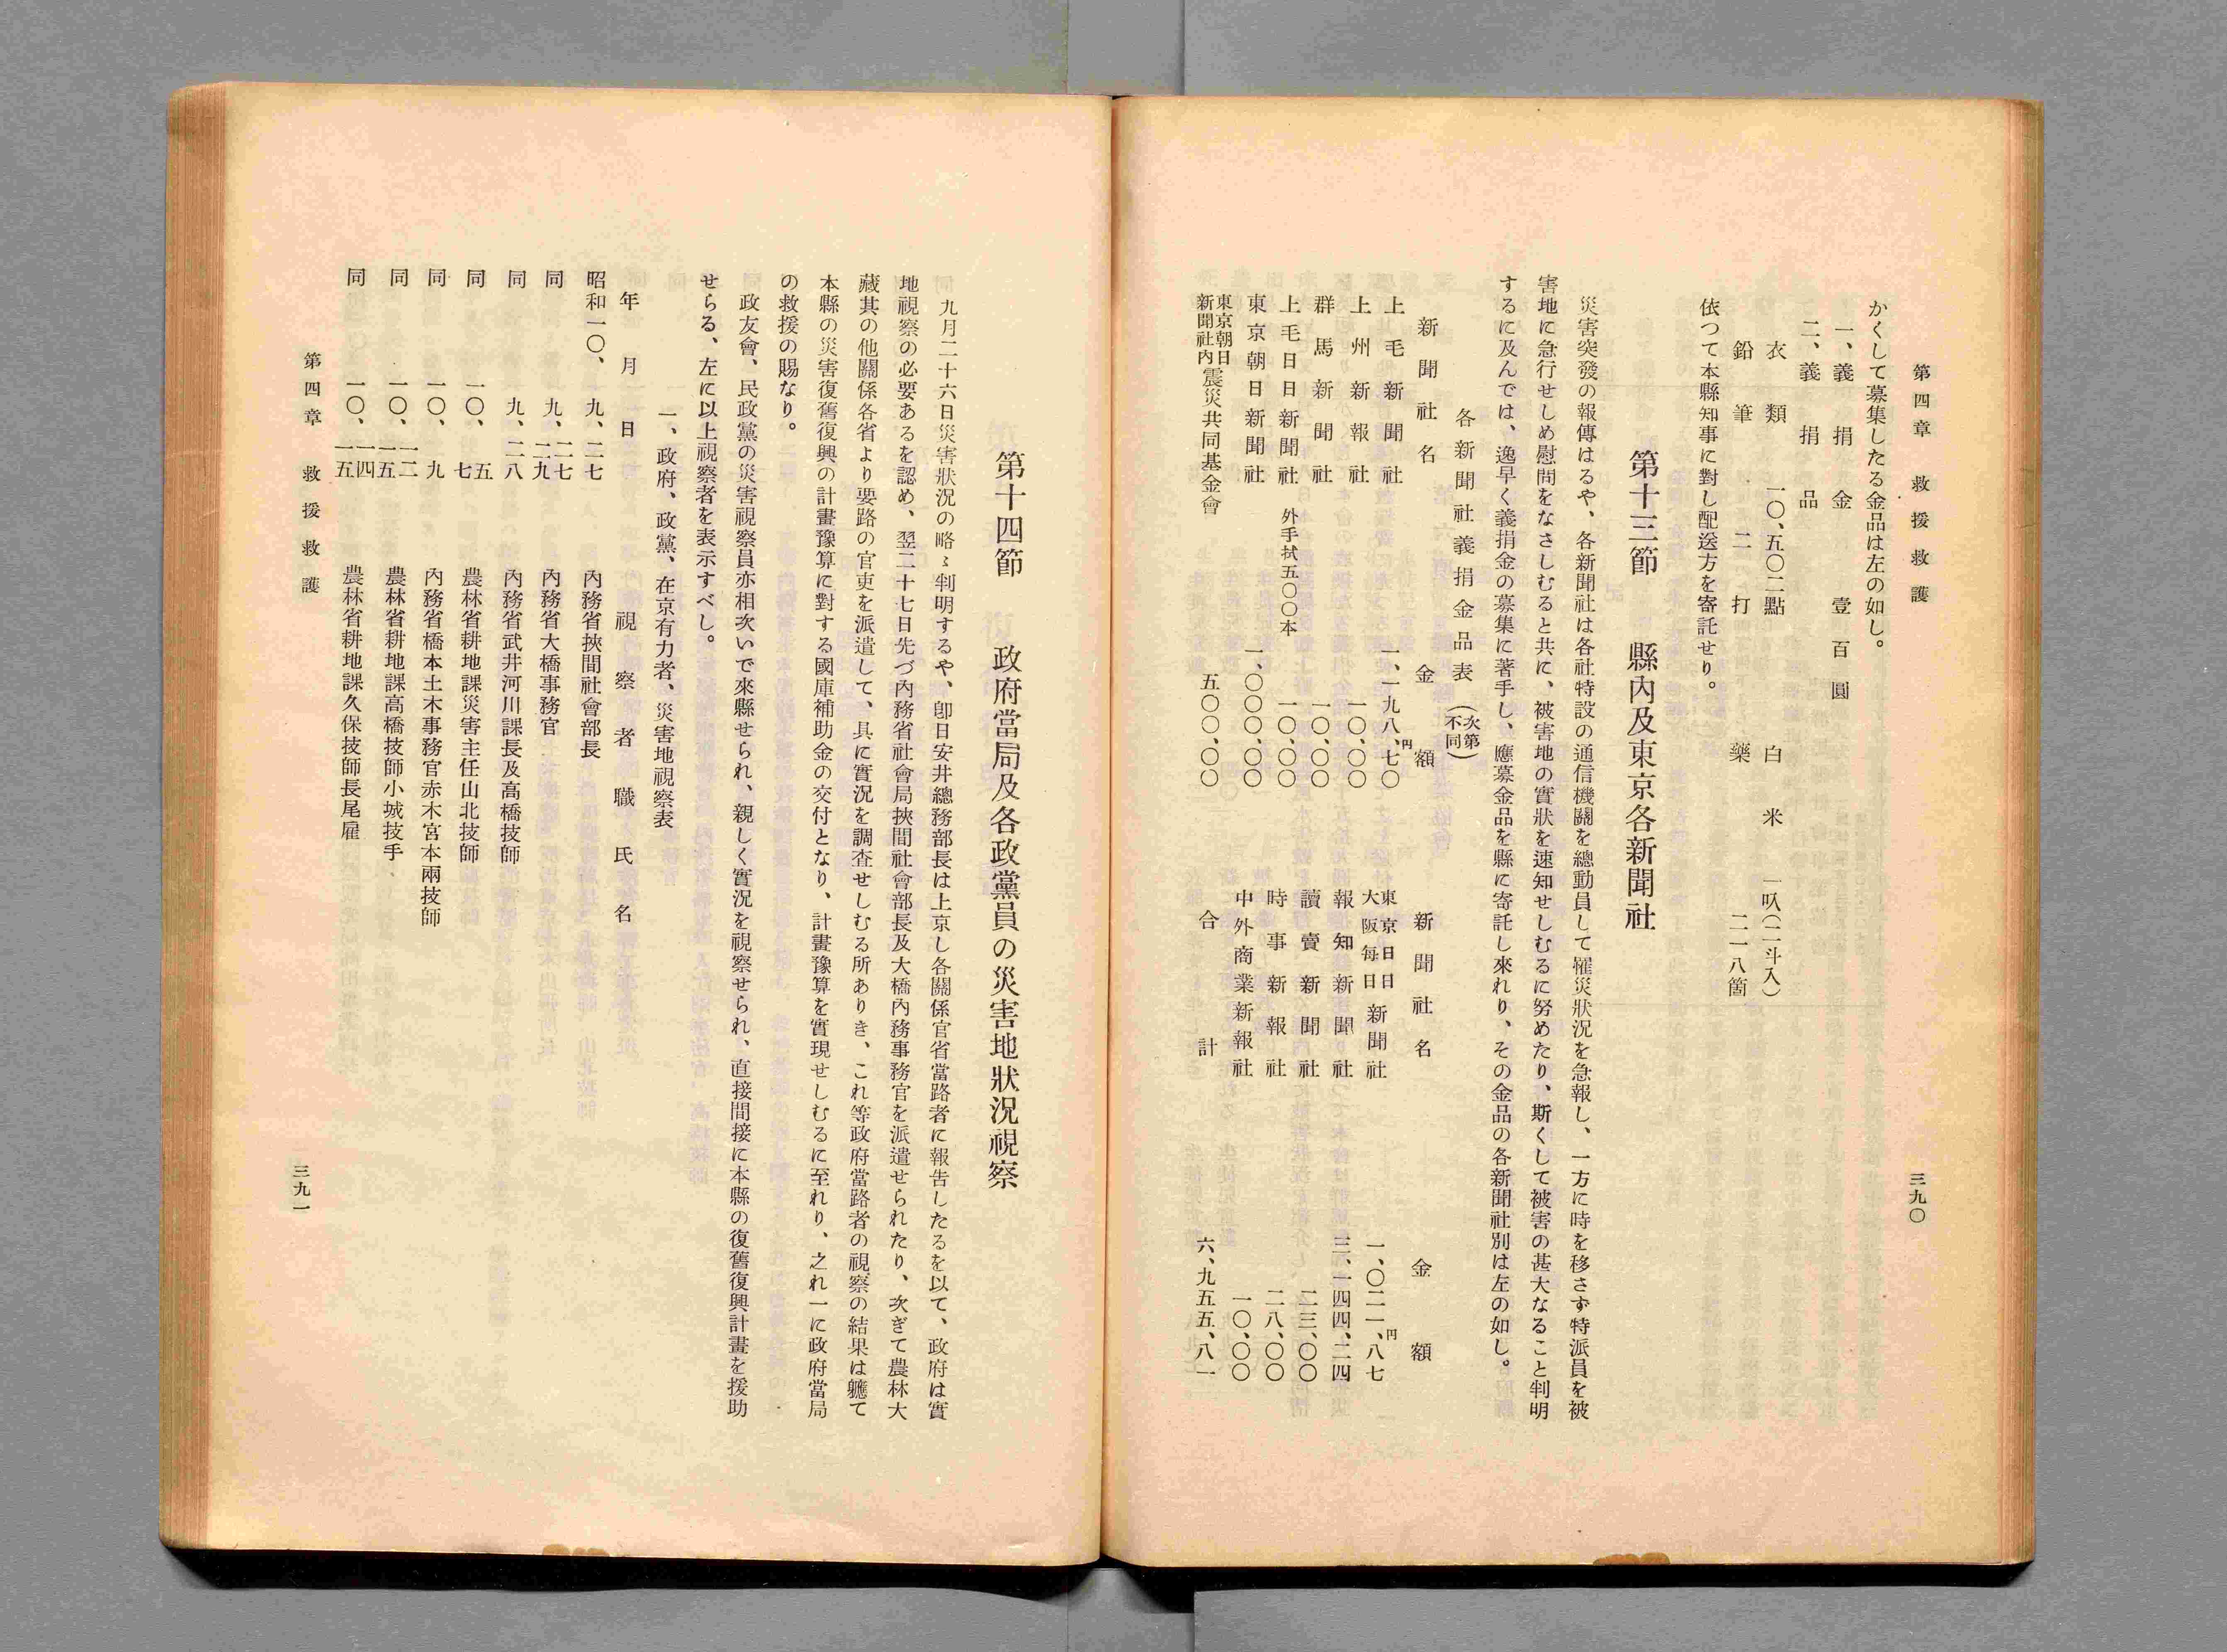 第四章　救援救護
三九〇
かくして募集したる金品は左の如し。
一、義捐金　壹百圓
二、義捐品
衣類　一〇、五〇二點　白米　一叺（二斗入）
鉛筆　二一打　藥　二一八箇
依つて本縣知事に對し配送方を寄託せり。
第十三節　縣內及東京各新聞社
災害突發の報傳はるや、各新聞社は各社特設の通信機關を總動員して罹災狀況を急報し、一方に時を移さず特派員を被
害地に急行せしめ慰問をなさしむると共に、被害地の實狀を速知せしむるに努めたり、斯くして被害の甚大なること判明
するに及んでは、逸早く義捐金の募集に著手し、應募金品を縣に寄託し來れり、その金品の各新聞社別は左の如し。
各新聞社義捐金品表（次第不同）
新聞社名　金額　新聞社名　金額
上毛新聞社　一、一九八、七〇円　東京日日大阪每日新聞社　一、〇二一、八七円
上州新報社　一〇、〇〇　報知新聞社　三、一四四、二四
群馬新聞社　一〇、〇〇　讀賣新聞社　二三、〇〇
上毛日日新聞社　外手拭五〇〇本　一〇、〇〇　時事新報社　二八、〇〇
東京朝日新聞社　一、〇〇〇、〇〇　中外商業新報社　一〇、〇〇
東京朝日新聞社內震災共同基金會　五〇〇、〇〇　合計　六、九五五、八一
第十四節　政府當局及各政黨員の災害地狀況視察
九月二十六日災害狀況の略〻判明するや、卽日安井總務部長は上京し各關係官省當路者に報告したるを以て、政府は實
地視察の必要あるを認め、翌二十七日先づ內務省社會局挾間社會部長及大橋內務事務官を派遣せられたり、次ぎて農林大
藏其の他關係各省より要路の官吏を派遣して、具に實況を調査せしむる所ありき、これ等政府當路者の視察の結果は軈て
本縣の災害復舊復興の計畫豫算に對する國庫補助金の交付となり、計畫豫算を實現せしむるに至れり、之れ一に政府當局
の救援の賜なり。
政友會、民政黨の災害視察員亦相次いで來縣せられ、親しく實況を視察せられ、直接間接に本縣の復舊復興計畫を援助
せらる、左に以上視察者を表示すべし。
一、政府、政黨、在京有力者、災害地視察表
年月日　視察者職氏名
昭和一〇、九、二七　內務省挾間社會部長
同　九、二七二九　內務省大橋事務官
同　九、二八　內務省武井河川課長及高橋技師
同　一〇、五七　農林省耕地課災害主任山北技師
同　一〇、九　內務省橋本土木事務官赤木宮本兩技師
同　一〇、一二一五　農林省耕地課高橋技師小城技手
同　一〇、一四一五　農林省耕地課久保技師長尾雇
第四章　救援救護
三九一